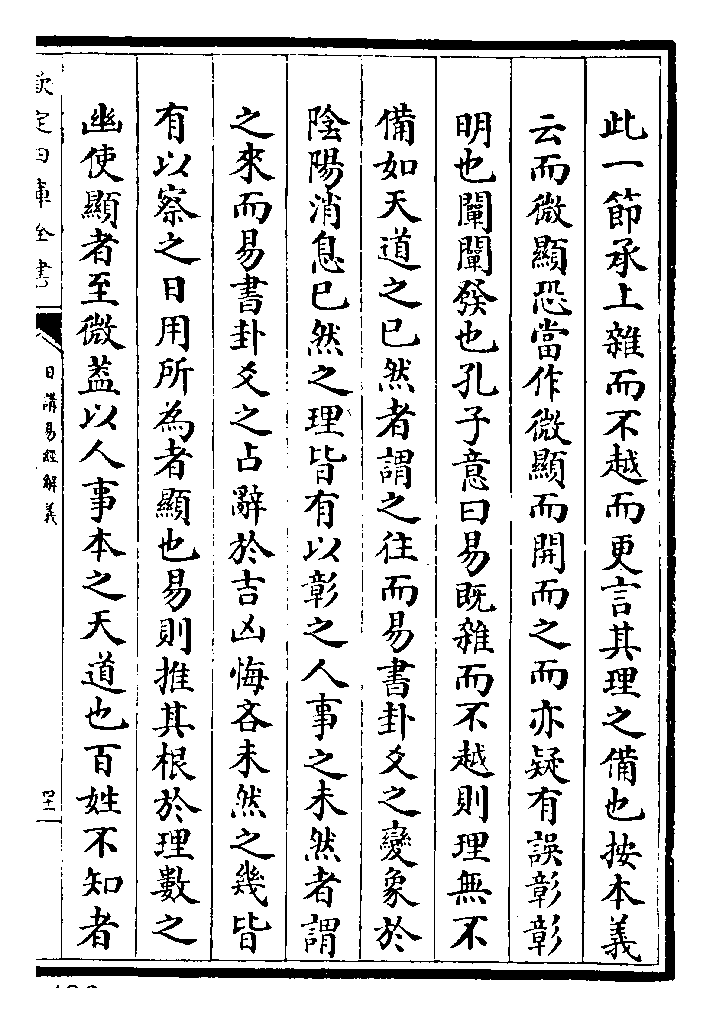 此一節承上雜而不越而更言其理之備也按本義
云而微顯恐當作微顯而開而之而亦疑有誤彰彰
明也闡闡發也孔子意曰易既雜而不越則理無不
備如天道之已然者謂之往而易書卦爻之變象於
陰陽消息已然之理皆有以彰之人事之未然者謂
之來而易書卦爻之占辭於吉凶悔吝未然之幾皆
有以察之日用所為者顯也易則推其根於理數之
幽使顯者至微葢以人事本之天道也百姓不知者
欽定四庫全書
日講易經解義